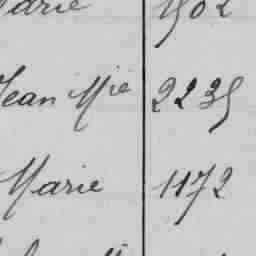 arie 1502
Jean Mie 2235
Marie 1172